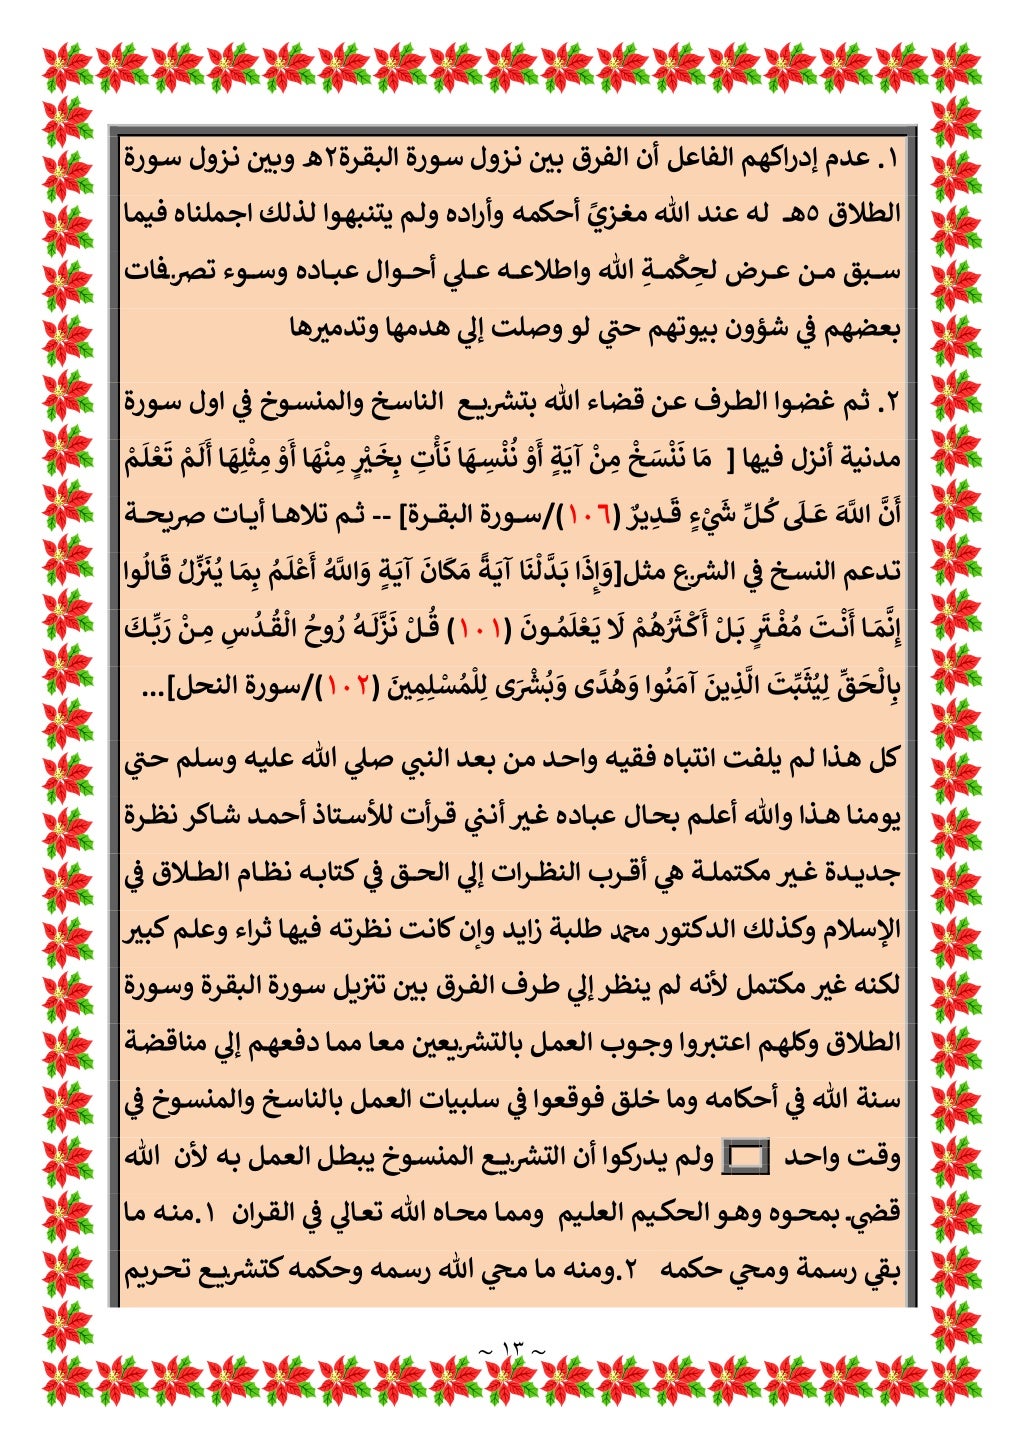 ١. عدم إدراكهم الفاعل أن الفرق بين نزول سورة البقرة٢هـ وبين نزول سورة
الطلاق ٥هـ له عند الله مغزيً أحكمه وأراده ولم يتنبهوا لذلك اجملناه فيما
سبق من عرض لحِكْمةِ الله واطلاعه علي أحوال عباده وسوء تصرفات
بعضهم في شؤون بيوتهم حتي لو وصلت إلي هدمها وتدميرها
٢. ثم غضوا الطرف عن قضاء الله بتشريع الناسخ والمنسوخ في اول سورة
مدنية أنزل فيها [ مَا نَنْسَخْ مِنْ آيَةٍ أَوْ نُنْسِهَا نَأْتِ بِخَيْرٍ مِنْهَا أَوْ مِثْلِهَا أَلَمْ تَعْلَمْ
أَنَّ اللَّهَ عَلَى كُلِّ شَيْءٍ قَدِيرٌ (١٠٦)/سورة البقرة] -- ثم تلاها أيات صريحة
تدعم النسخ في الشرع مثل[وَإِذَا بَدَّلْنَا آيَةً مَكَانَ آيَةٍ وَاللَّهُ أَعْلَمُ بِمَا يُنَزِّلُ قَالُوا
إِنَّمَا أَنْتَ مُفْتَرٍ بَلْ أَكْثَرُهُمْ لَا يَعْلَمُونَ (١٠١) قُلْ نَزَّلَهُ رُوحُ الْقُدُسِ مِنْ رَبِّكَ
بِالْحَقِّ لِيُثَبِّتَ الَّذِينَ آمَنُوا وَهُدًى وَبُشْرَى لِلْمُسْلِمِينَ (١٠٢)/سورة النحل]...
كل هذا لم يلفت انتباه فقيه واحد من بعد النبي صلي الله عليه وسلم حتي
يومنا هذا والله أعلم بحال عباده غير أنني قرأت للأستاذ أحمد شاكر نظرة
جديدة غير مكتملة هي أقرب النظرات إلي الحق في كتابه نظام الطلاق في
الإسلام وكذلك الدكتور محمد طلبة زايد وإن كانت نظرته فيها ثراء وعلم كبير
لكنه غير مكتمل لأنه لم ينظر إلي طرف الفرق بين تنزيل سورة البقرة وسورة
الطلاق وكلهم اعتبروا وجوب العمل بالتشريعين معا مما دفعهم إلي مناقضة
سنة الله في أحكامه وما خلق فوقعوا في سلبيات العمل بالناسخ والمنسوخ في
وقت واحد ولم يدركوا أن التشريع المنسوخ يبطل العمل به لأن الله
قضي بمحوه وهو الحكيم العليم ومما محاه الله تعالي في القران ١.منه ما
بقي رسمة ومحي حكمه ٢.ومنه ما محي الله رسمه وحكمه كتشريع تحريم
~ ١٣ ~